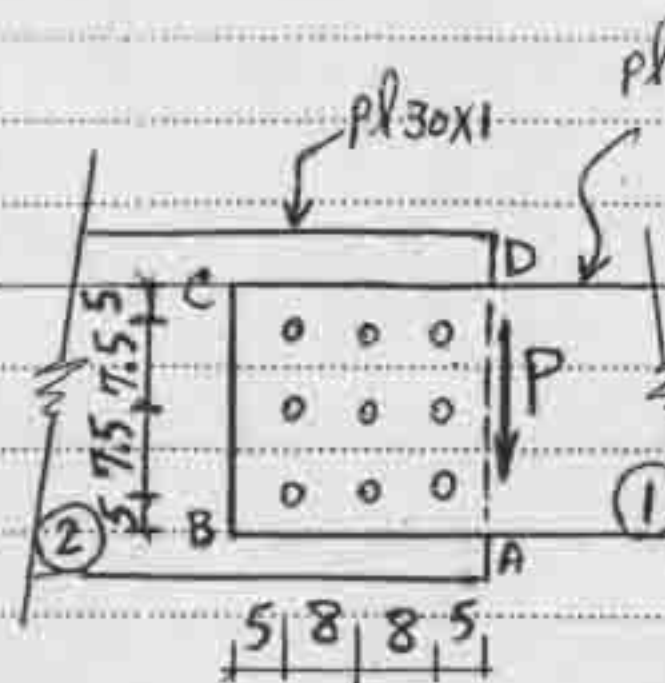 pl
pl 30x1
D
C
5
7.5
7.5
5
P
2
B
1
A
5 8 8 5